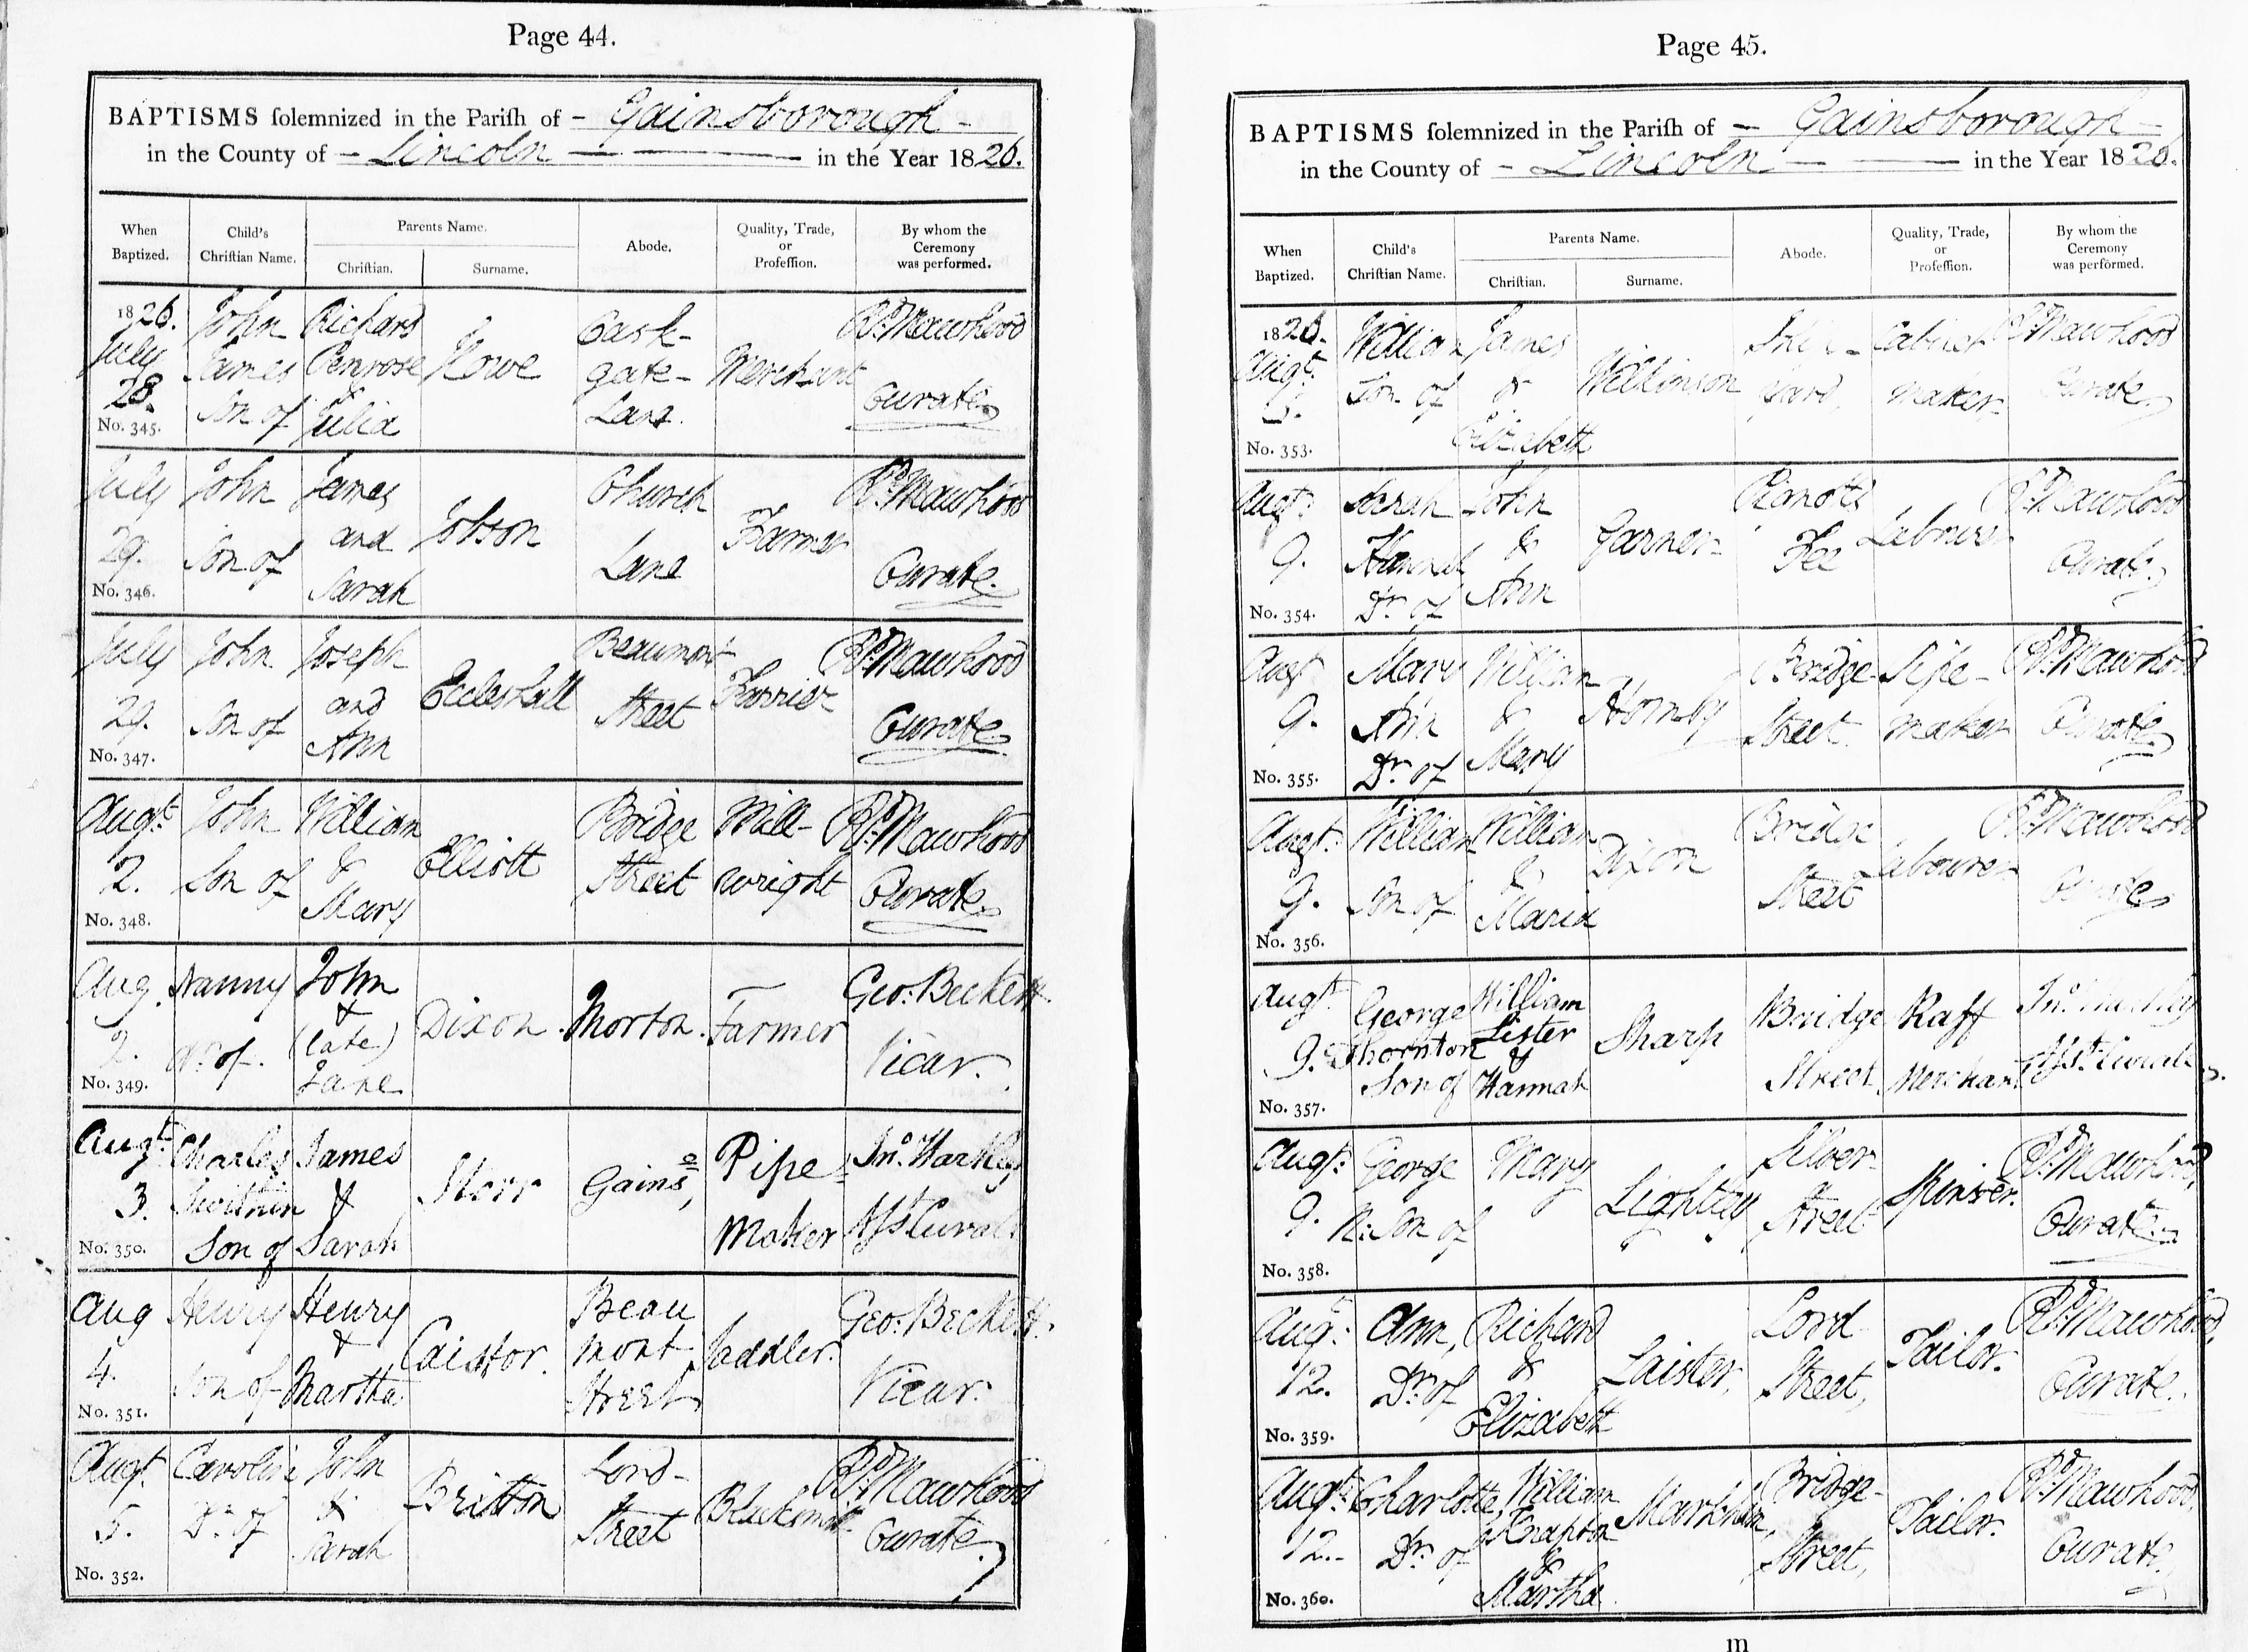 Page 44.
BAPTISMS solemnized in the Parish of - Gainsborough -
in the County of - Lincoln - in the Year 1826.
When Baptized.
Child's Christian Name.
Parents Name.
Christian.
Surname.
Abode.
Quality, Trade, or Profession.
By whom the Ceremony was performed.
1826. July 28. No. 345.
John James Son of
Richard Penrose & Julia
Howe
Cask-gate-Lane.
Merchant
Rd. Mawhood Curate.
July 29. No. 346.
John Son of
James and Sarah
Jobson
Church Lane
Farmer
Rd. Mawhood Curate.
July 29. No. 347.
John Son of
Joseph and Ann
Eccleshall
Beaumont Street
Farrier
Rd. Mawhood Curate.
Augt. 2. No. 348.
John Son of
William & Mary
Elliott
Bridge Street
Mill-wright
Rd. Mawhood Curate.
Aug. 2. No. 349.
Nanny Dr. of
John & (late) Jane
Dixon
Morton.
Farmer
Geo: Beckett. Vicar.
Augt. 3. No. 350.
Charles Swithin Son of
James & Sarah
Storr
Gains,
Pipe Maker
Jno. Hartley Asst Curate
Aug 4. No. 351.
Henry Son of
Henry & Martha
Caistor.
Beau mont Street
Saddler.
Geo: Beckett. Vicar.
Augt. 5. No. 352.
Caroline Dr. of
John & Sarah
Britton
Lord-Street
Blacksmith
Rd. Mawhood Curate.
Page 45.
BAPTISMS solemnized in the Parish of - Gainsborough -
in the County of - Lincoln - in the Year 1826.
When Baptized.
Child's Christian Name.
Parents Name.
Christian.
Surname.
Abode.
Quality, Trade, or Profession.
By whom the Ceremony was performed.
1826. Augt. No. 353.
William Son of
James & Elizabeth
Wilkinson
yard,
Cabinet maker
Rd. Mawhood Curate.
Augt: 9. No. 354.
Sarah Hannah Dr. of
John & Ann
Garner
Fee
Labourer
Rd. Mawhood Curate.
Augt 9. No. 355.
Mary Ann Dr. of
William & Mary
Hornby
Bridge Street
Pipe-maker
Rd. Mawhood Curate.
Augt: 9. No. 356.
William Son of
William & Maria
Dixon
Bridge Street
Labourer
Rd. Mawhood Curate
Augt 9. No. 357.
George Thornton Son of
William Lister & Hannah
Sharp
Bridge Street
Raff Merchant
Jno. Hartley Asst. Curate.
Augt: 9. No. 358.
George N: Son of
Mary
Silver-Street
Spinster.
Rd. Mawhood, Curate.
Aug: 12. No. 359.
Ann, Dr. of
Richard & Elizabeth
Laister,
Lord Street,
Tailor.
Rd. Mawhood, Curate.
Augt: 12. No. 360.
Charlotte, Dr. of
William Knapton & Martha
Markham,
Bridge-Street,
Tailor.
Rd. Mawhood, Curate,
m